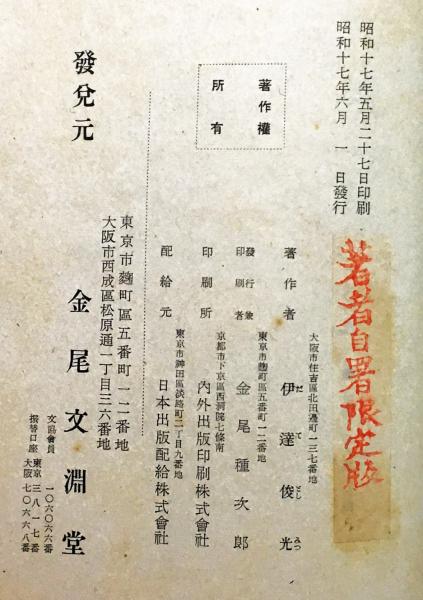 昭和十七年五月二十七日印刷
昭和十七年六月一日發行
著者自署限定版
著作權
所有
大阪市住吉區北田邊町一三七番地
著作者 伊達俊光
だ て とし みつ
東京市麴町區五番町一二番地
發行兼
印刷者 金尾種次郎
京都市下京區西洞院七條南
印刷所 內外出版印刷株式會社
東京市神田區淡路町二丁目九番地
配給元 日本出版配給株式會社
發兌元
東京市麴町區五番町一二番地
大阪市西成區松原通一丁目三六番地
金尾文淵堂
文協會員 一〇六〇六六番
振替口座 東京 三八一七番
大阪 七〇六六八番